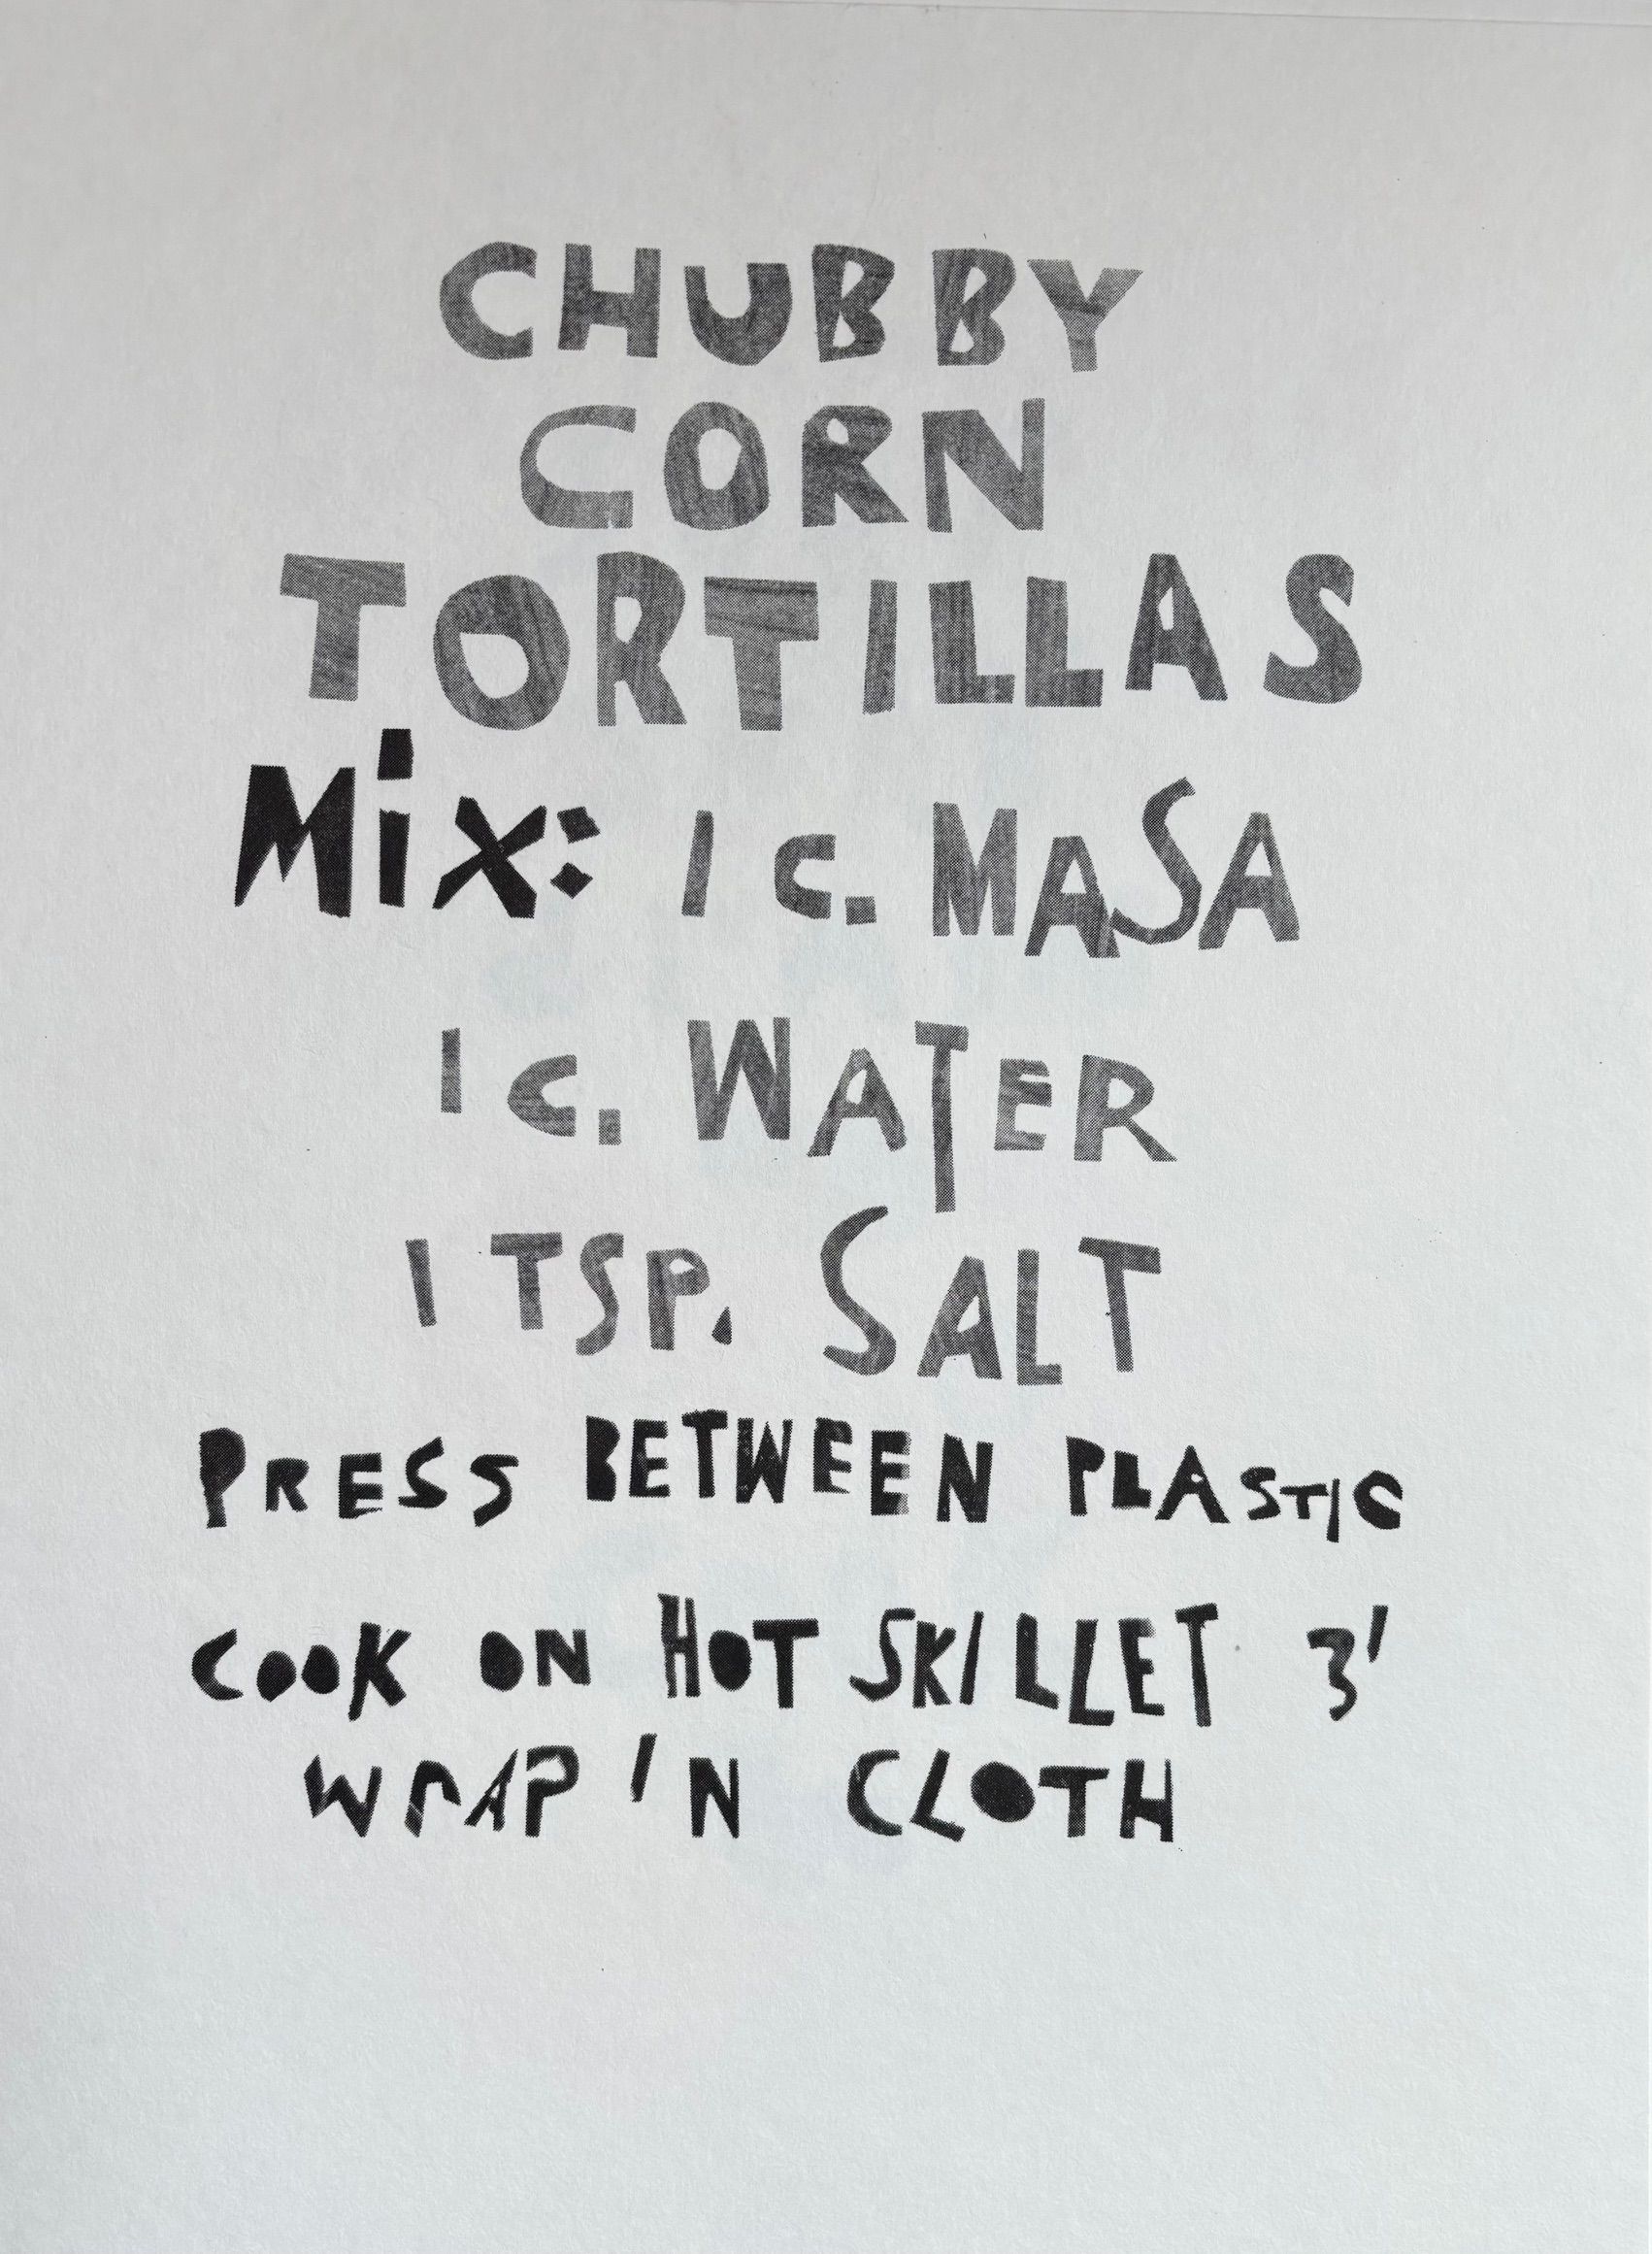 CHUBBY
CORN
TORTILLAS
MiX: 1 C. MASA
1 C. WATER
1 TSP. SALT
PRESS BETWEEN PLASTIC
COOK ON HOT SKILLET 3'
WRAP 'N CLOTH